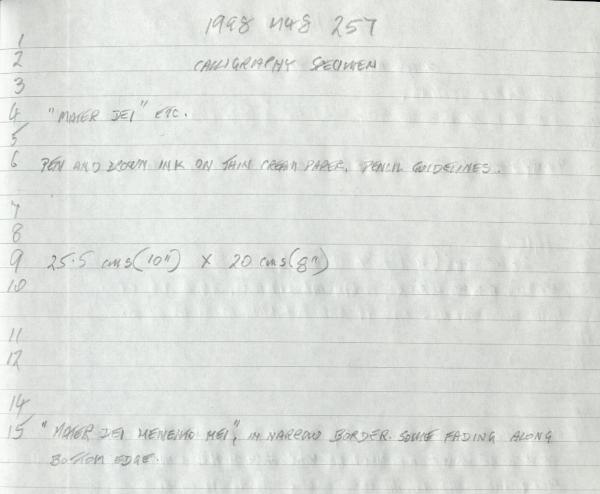 1998 M48 257
1
2 CALLIGRAPHY SPECIMEN
3
4 "MATER DEI" ETC.
5
6 PEN AND BROWN INK ON THIN CREAM PAPER. PENCIL GUIDELINES.
7
8
9 25.5 cms (10") X 20 cms (8")
10
11
12
14
15 "MATER DEI MEMENTO MEI", IN NARROW BORDER. SOME FADING ALONG
BOTTOM EDGE.